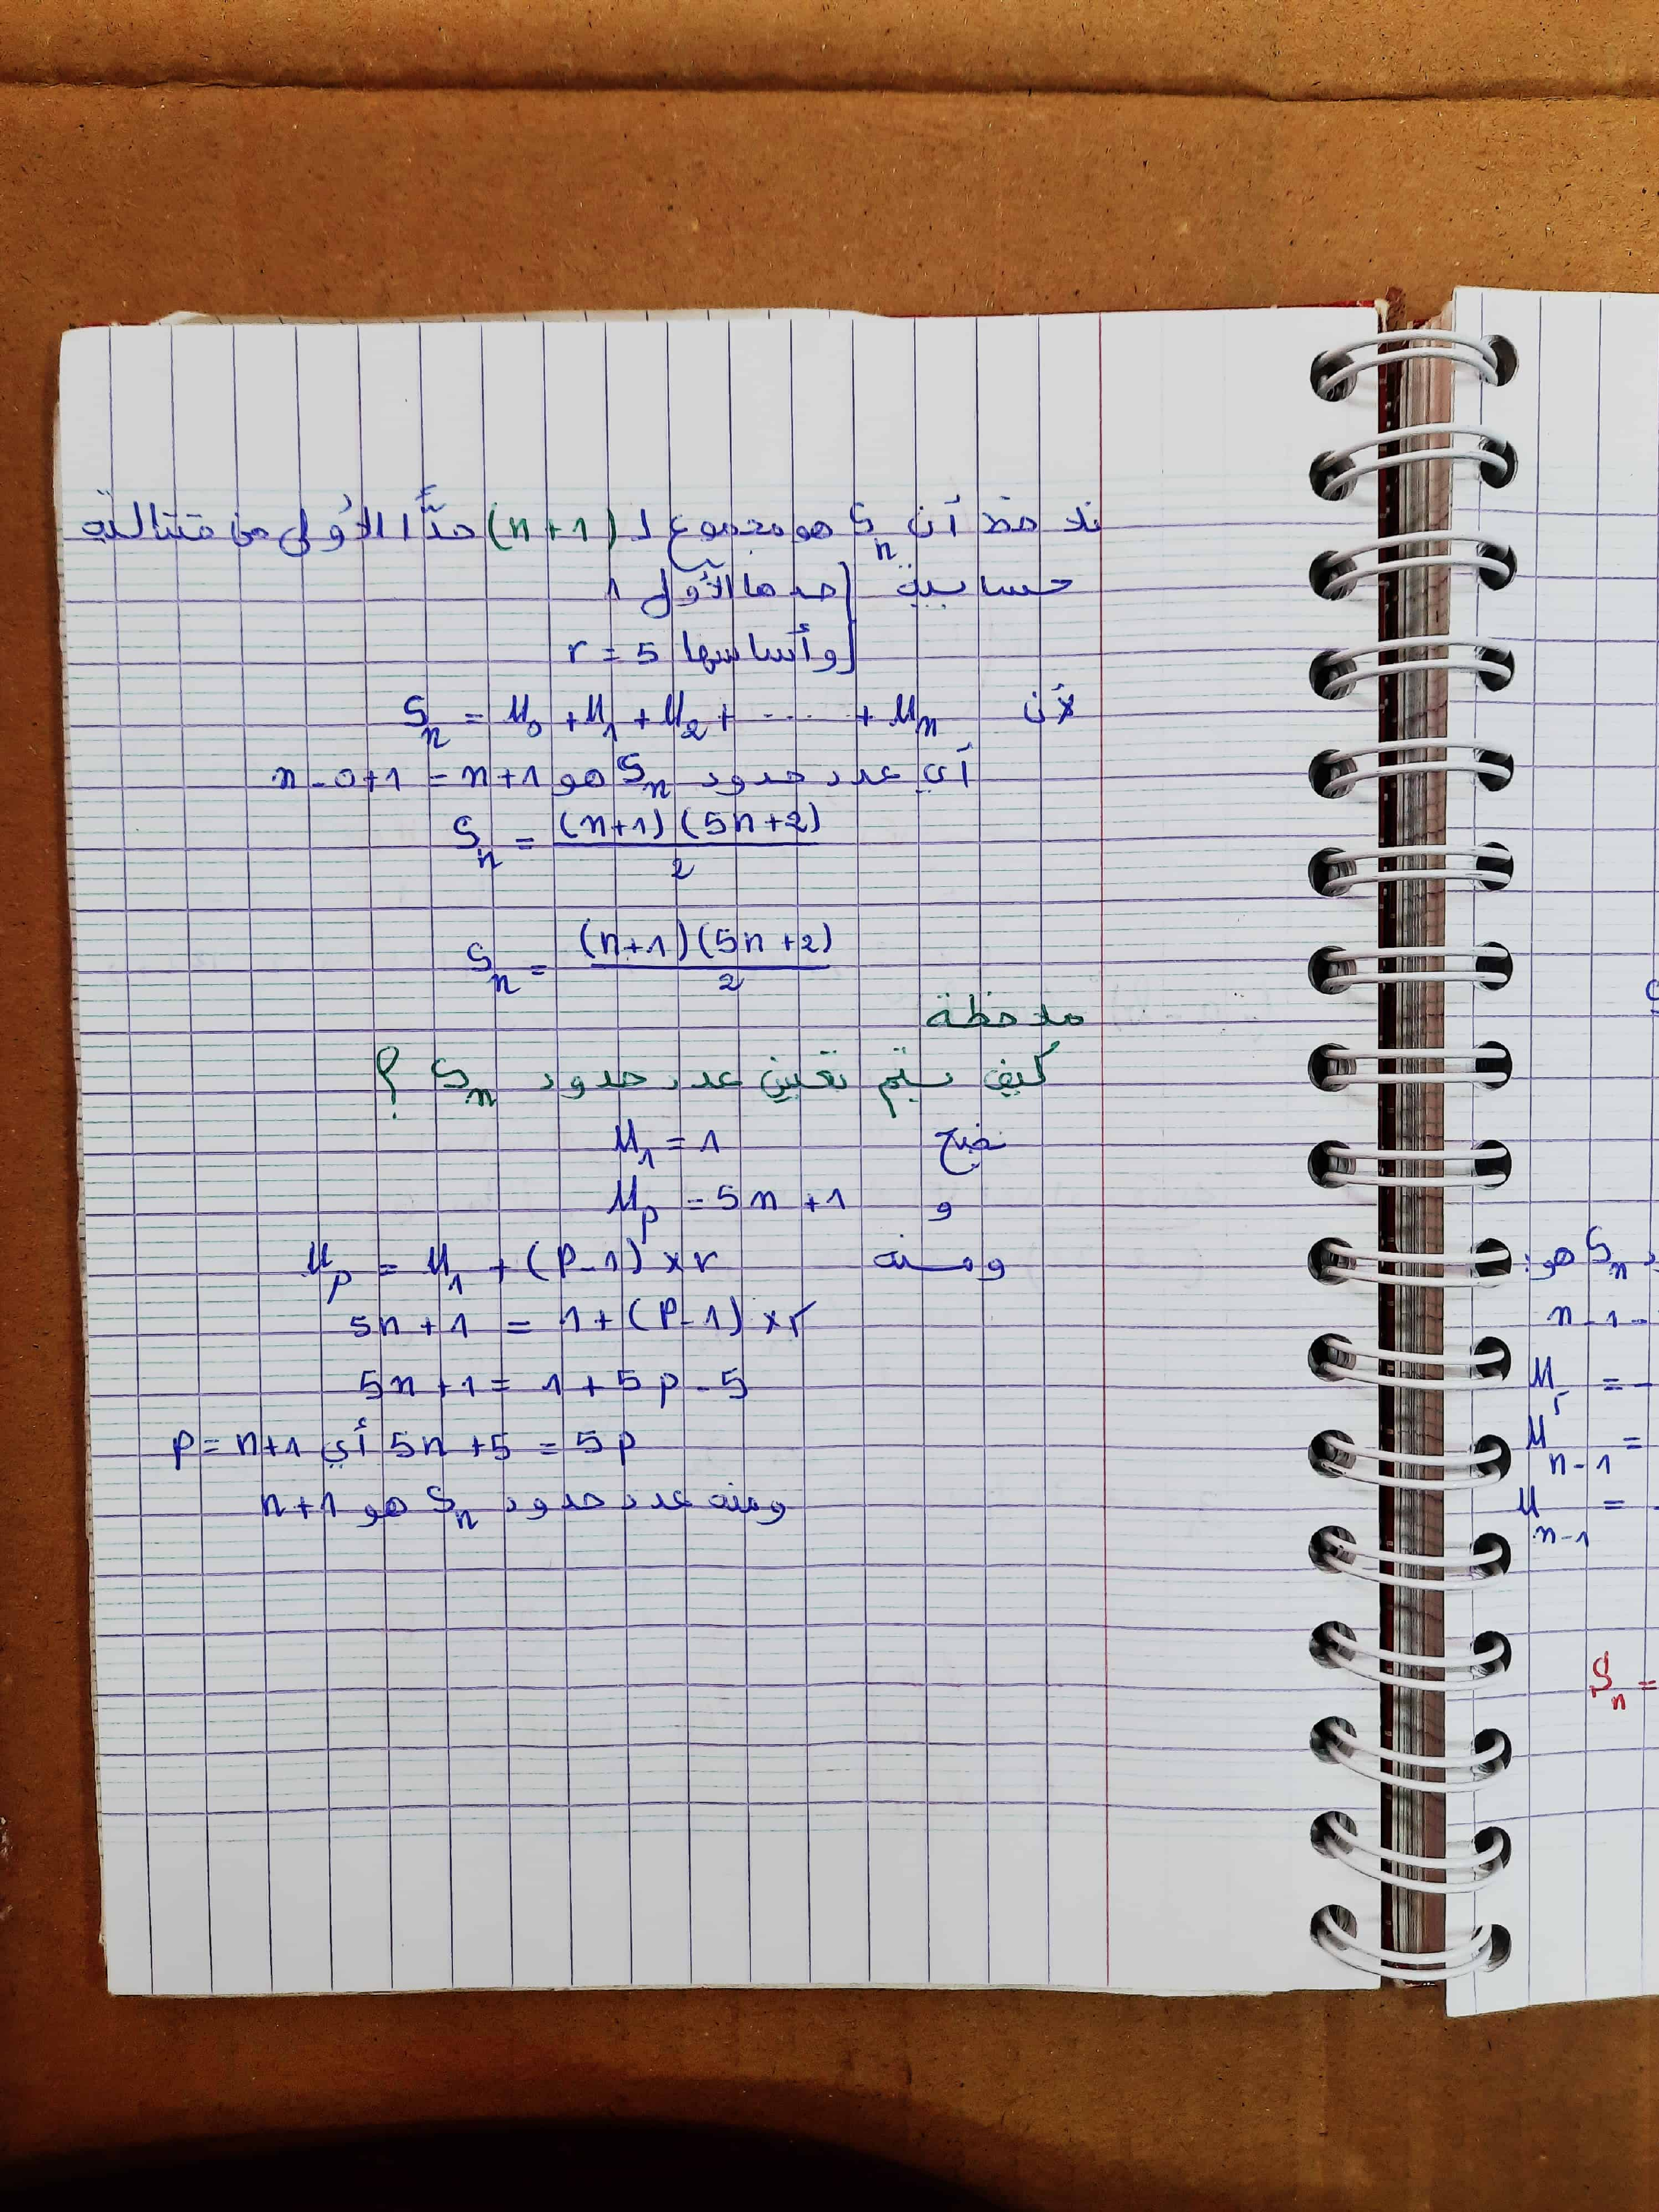 نلاحظ أن Sn هو مجموع لـ (n+1) حدًّا الأولى من متتالية
حسابية حدها الأول 1
وأساسها r = 5
لأن Sn = U0 + U1 + U2 + ---- + Un
أي عدد حدود Sn هو n-0+1 = n+1
Sn = (n+1)(5n+2) / 2
Sn = (n+1)(5n+2) / 2
ملاحظة
كيف يتم تعيين عدد حدود Sn ؟
نضع U1 = 1
و Up = 5n + 1
ومنه Up = U1 + (P-1) × r
5n + 1 = 1 + (P-1) × r
5n + 1 = 1 + 5p - 5
5n + 5 = 5p أي p = n+1
ومنه عدد حدود Sn هو n+1
Sn هو:
n-1-
Ur = -
Un-1 =
Un-1 = -
Sn =